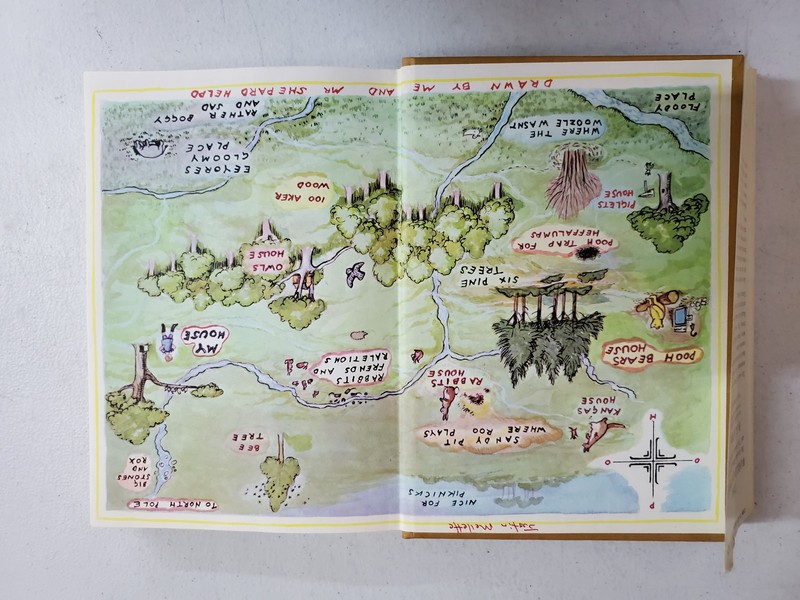 Justin Meilette
P
O
O
H
NICE FOR
PIKNICKS
TO NORTH POLE
BIG
STONES
AND
ROX
BEE
TREE
KANGAS
HOUSE
SANDY PIT
WHERE ROO PLAYS
RABBITS
HOUSE
RABBITS
FRENDS AND
RALETIONS
MY
HOUSE
POOH BEARS
HOUSE
SIX PINE
TREES
POOH TRAP FOR
HEFFALUMPS
OWLS
HOUSE
PIGLETS
HOUSE
100 AKER
WOOD
WHERE THE
WOOZLE WASNT
EEYORES
GLOOMY
PLACE
RATHER BOGGY
AND SAD
FLOODY
PLACE
DRAWN BY ME AND MR SHEPARD HELPD